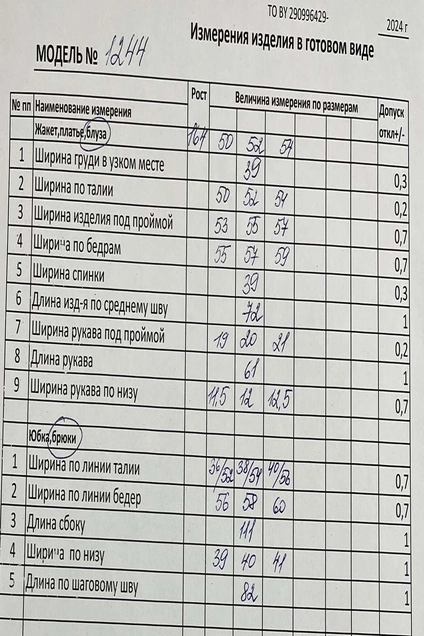 ТО BY 290996429-
2024 г
Измерения изделия в готовом виде
МОДЕЛЬ № 1244
№ пп Наименование измерения Рост Величина измерения по размерам Допуск откл+/-
Жакет,платье,блуза 164 50 52 54
1 Ширина груди в узком месте 39 0,3
2 Ширина по талии 50 52 54 0,2
3 Ширина изделия под проймой 53 55 57 0,7
4 Ширина по бедрам 55 57 59 0,7
5 Ширина спинки 39 0,3
6 Длина изд-я по среднему шву 72 1
7 Ширина рукава под проймой 19 20 21 0,2
8 Длина рукава 61 1
9 Ширина рукава по низу 11,5 12 12,5 0,7
Юбка,брюки
1 Ширина по линии талии 36/52 38/54 40/56 0,7
2 Ширина по линии бедер 56 58 60 0,7
3 Длина сбоку 111 1
4 Ширина по низу 39 40 41 1
5 Длина по шаговому шву 82 1